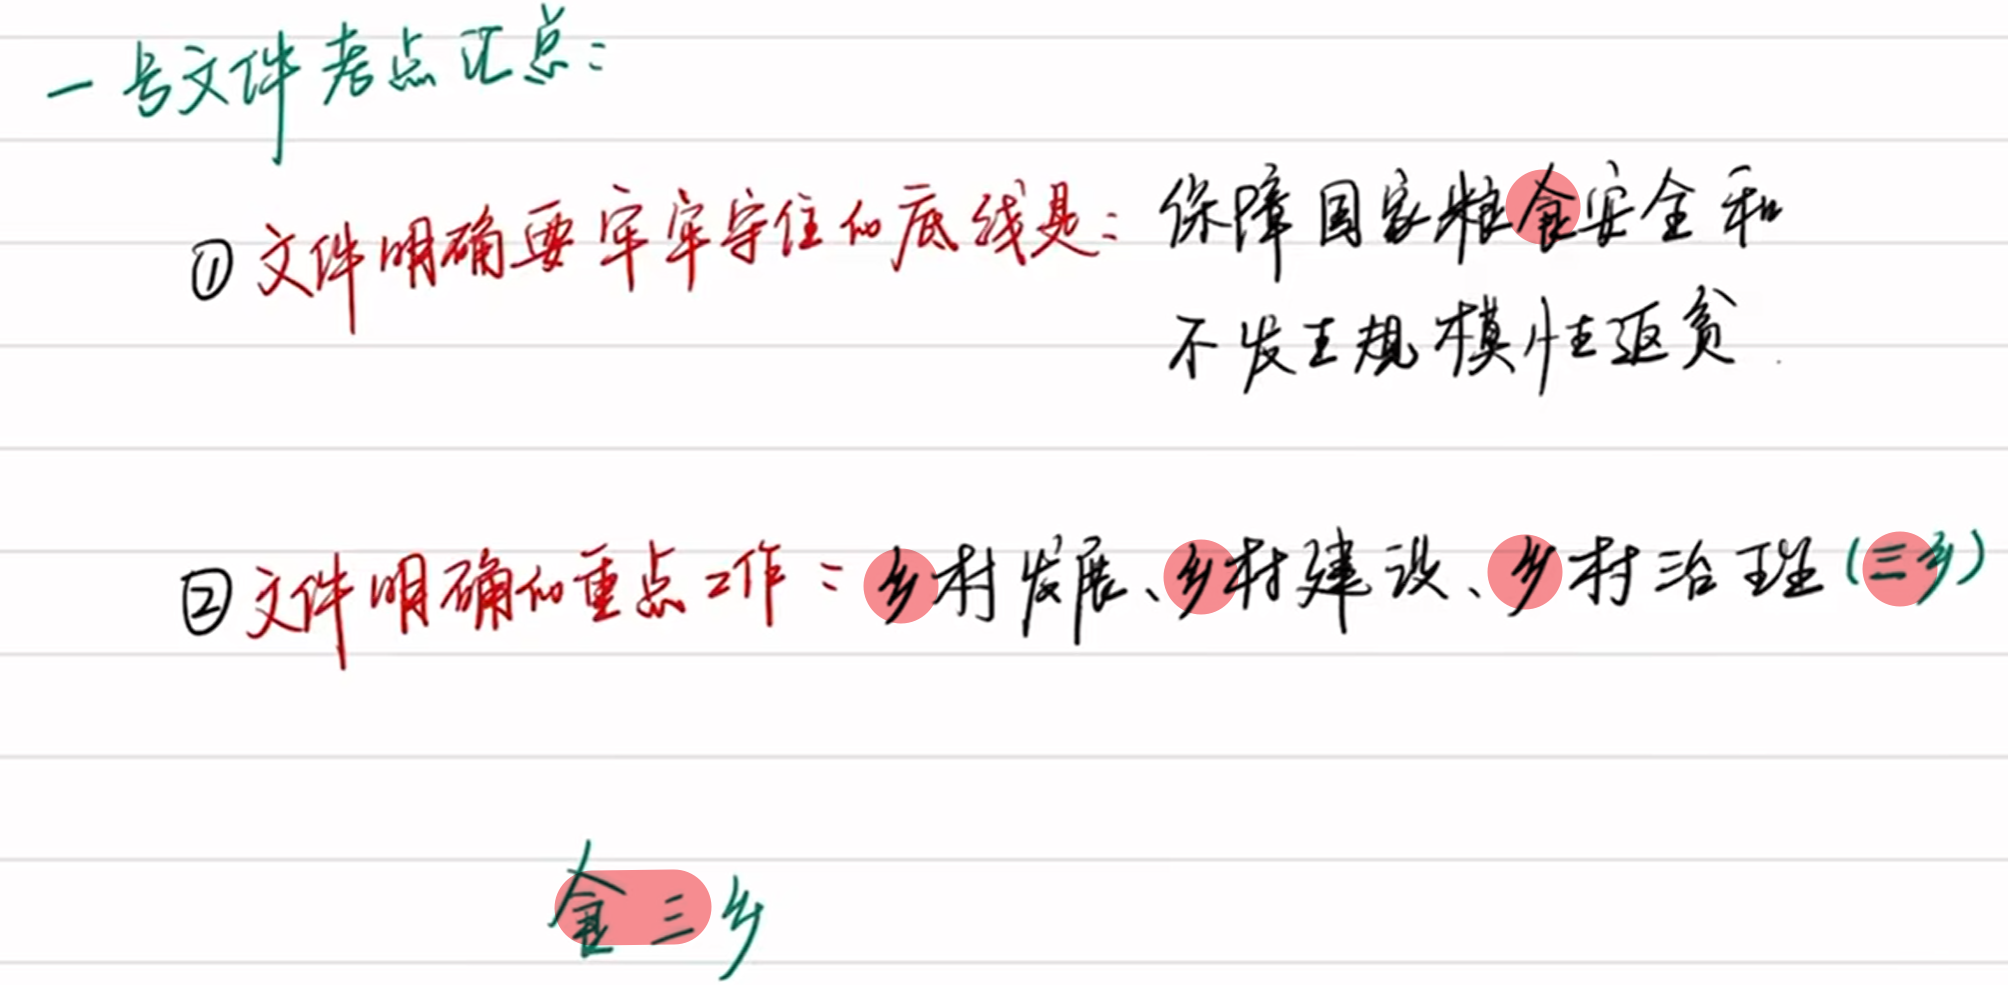 一号文件考点汇总：
①文件明确要牢牢守住的底线是：保障国家粮食安全和
不发生规模性返贫.
②文件明确的重点工作：乡村发展、乡村建设、乡村治理(三乡)
食三乡